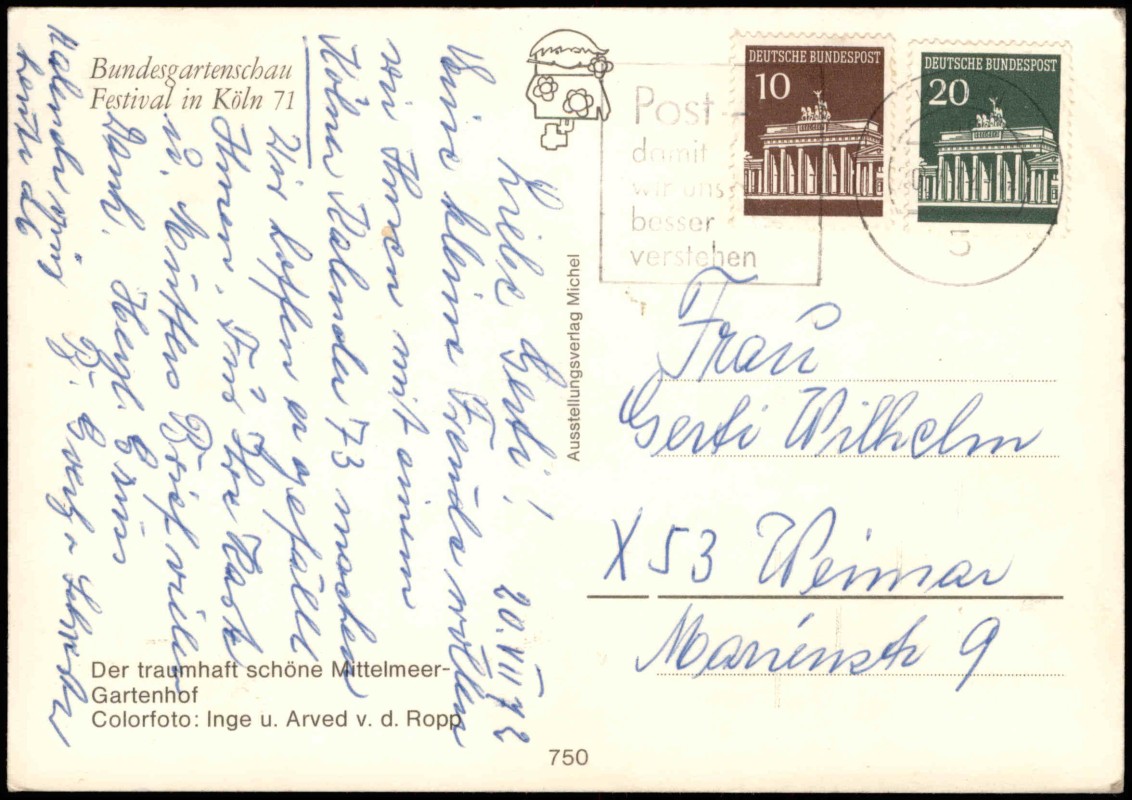 Bundesgartenschau
Festival in Köln 71
Post -
damit
wir uns
besser
verstehen
DEUTSCHE BUNDESPOST
10
DEUTSCHE BUNDESPOST
20
Liebe Gerti! 20.VII 72
Eine kleine Freude wollen
wir Ihnen mit einem
Kölner Kalender 73 machen
Wir hoffen er gefällt
Ihnen, Für Ihre Karte
u. Mutters Brief vielen
Dank. Herzl. Grüss
Kalender ging
heute ab
Ausstellungsverlag Michel
Frau
Gerti Wilhelm
X 53 Weimar
Marienstr 9
Der traumhaft schöne Mittelmeer-
Gartenhof
Colorfoto: Inge u. Arved v. d. Ropp
750